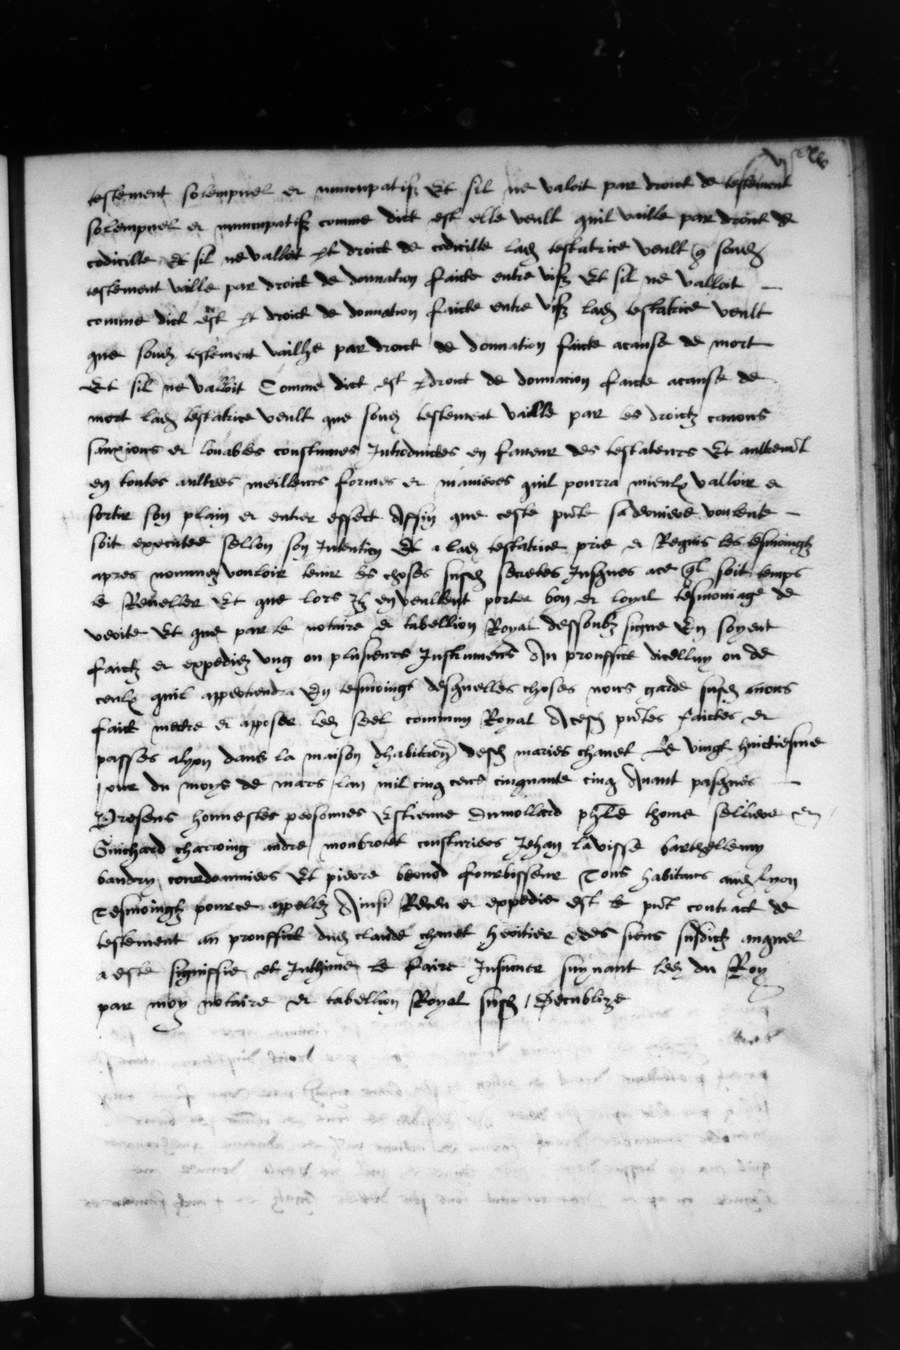 testement solempnel et nuncupatifz Et sil ne valoit par droict de testement
solempnel et nuncupatifz comme dict est elle veult quil vaille par droict de
codicille Et sil ne valloit p droict de codicille lad testatrice veult q sond
testement vaille par droict de donnation faicte entre vifz Et sil ne valloit
comme dict est p droict de donnation faicte entre vifz lad testatrice veult
que sond testement vailhe par droict de donnation faicte acause de mort
Et sil ne valloit Comme dict est p droict de donnation faicte acause de
mort lad testatrice veult que sond testement vaille par les droictz canons
sanxions et louables coustumes Introduictes en faueur des testateurs Et aultremt
en toutes aultres meilleurs formes et manieres quil pourra mieulx valloir et
sortir son plain et entier effect Affin que ceste pnte sa derniere voulente
soit executee sellon son Intention Et a lad testatrice prie et Requis les tesmoingtz
apres nommez vouloir tenir les choses susd secretes Jusques ace ql soit temps
le Reveller Et que lors Ilz en veullent porter bon et loyal tesmoniage de
verite Et que par le notaire et tabellion Royal dessoubz signe En soyent
faictz et expediez vng ou plusieurs Instrumens Au prouffict dicelluy ou de
ceulx quil appertiendra En tesmoings desquelles choses nous garde susd auons
faict mectre et apposer led seel commun Royal Acesd pntes faictes et
passes alyon dans la maison dhabitation desd maries chanet Le vingt huictiesme
Jour du moys de mars lan mil cinq cens cinquante cinq Auant pasques
Presens honnestes personnes Estienne Dumollard thome selliere
Guichard charroing andre monbrotet cousturiers Jehan lauisse barthellemy
baudry courdonniers Et pierre fourbisseur Tous habitans aud lyon
Tesmoingtz pource appellez Ainsi Receu et expedie est le pnt contract de
testement au prouffict dud claude chanet heritier et des siens susdictz auquel
a este signiffie et Inthime le faire Insinuer suyuant led du Roy
par moy notaire et tabellion Royal susd